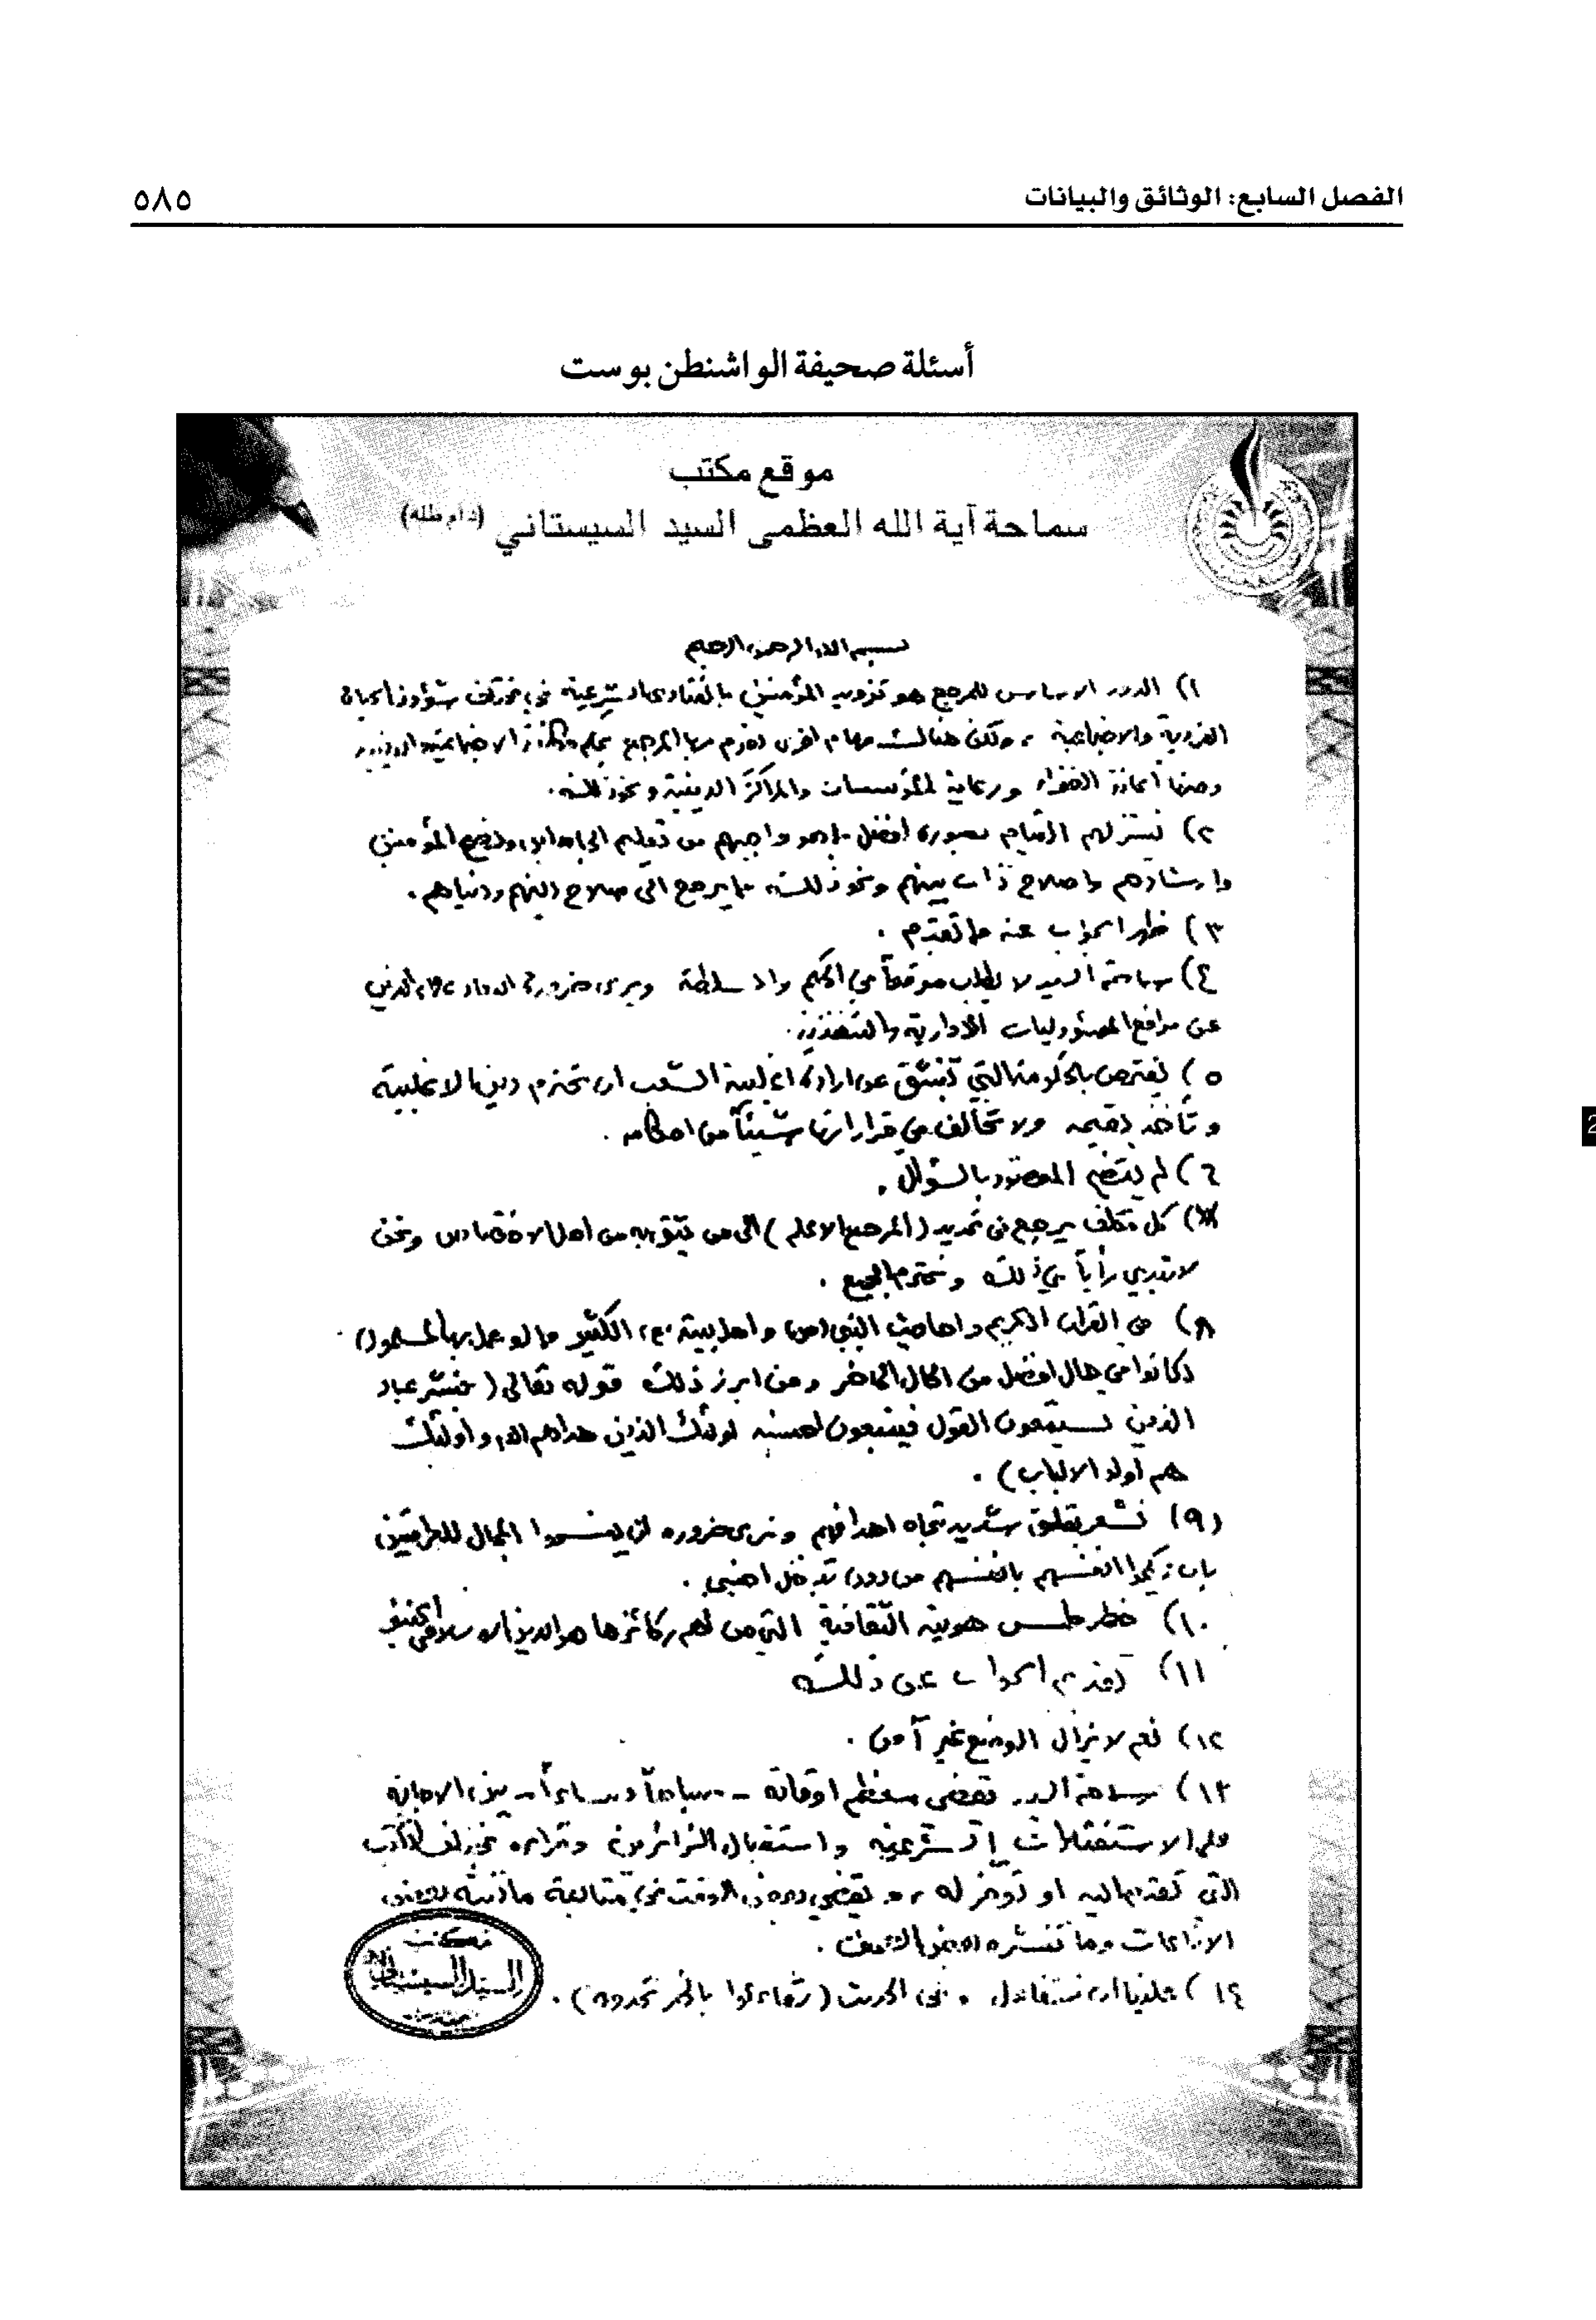 الفصل السابع: الوثائق والبيانات
٥٨٥
أسئلة صحيفة الواشنطن بوست
موقع مكتب
سماحة آية الله العظمى السيد السيستاني (دام ظله)
بسم الله الرحمن الرحيم
١) الدور الاساس للمرجع هو تزويد المؤمنين بالفتاوى الشرعية في مختلف شؤون الحياة
الفردية والاجتماعية ، ولكن هنالك مهام اخرى يقوم بها المرجع بحكم مكانته الاجتماعية والدينية
ومنها أعانة الفقراء ورعاية المؤسسات والمراكز الدينية ونحو ذلك.
٢) تيسّر لهم القيام بصورة افضل بما هو واجبهم من تعليم الجاهل ونصح المؤمنين
وارشادهم واصلاح ذات بينهم ونحو ذلك مما يرجع الى صلاح دينهم ودنياهم .
٣) ظهر الجواب عنه مما تقدم .
٤) سماحة السيد لا يطلب موقعاً في الحكم والسلطة ويرى ضرورة ابتعاد علماء الدين
عن مواقع المسؤوليات الادارية والتنفيذية.
٥) يفترض بالحكومة التي تنبثق عن ارادة اغلبية الشعب ان تحترم دين الاغلبية
وتأخذ بقيمه ولا تخالف في قراراتها شيئاً من احكامه .
٦) لم يتضح المقصود بالسؤال .
٧) كل مكلف يرجع في تحديد (المرجع الاعلم) الى من يثق به من اهل الاختصاص ونحن
لا نبدي رأياً في ذلك ونحترم الجميع .
٨) في القرآن الكريم واحاديث النبي (ص) واهل بيته (ع) الكثير مما لو عمل بها المسلمون
لكانوا في حال افضل من الحال الحاضر ومن ابرز ذلك قوله تعالى (فبشر عباد
الذين يستمعون القول فيتبعون احسنه اولئك الذين هداهم الله واولئك
هم اولو الالباب) .
(٩) نشعر بقلق شديد تجاه اهدافهم ونرى ضرورة ان يفسحوا المجال للعراقيين
بان يحكموا انفسهم بانفسهم من دون تدخل اجنبي .
١٠) خطر طمس هويته الثقافية التي من اهم ركائزها هو الدين الاسلامي الحنيف
١١) تقدم الجواب عن ذلك
١٢) نعم لا يزال الوضع غير آمن .
١٣) سماحة السيد يقضي معظم اوقاته – صباحاً ومساءاً – بين الاجابة
على الاستفتاءات الشرعية واستقبال الزائرين وقراءة الكتب
التي تقدم اليه او توفر له ، ويقضي بعض الوقت في متابعة ما تبثه بعض
الاذاعات وما تنشره بعض الصحف .
١٤) علينا ان نتفاءل . ففي الحديث (تفاءلوا بالخير تجدوه) .
مكتب
السيد السيستاني